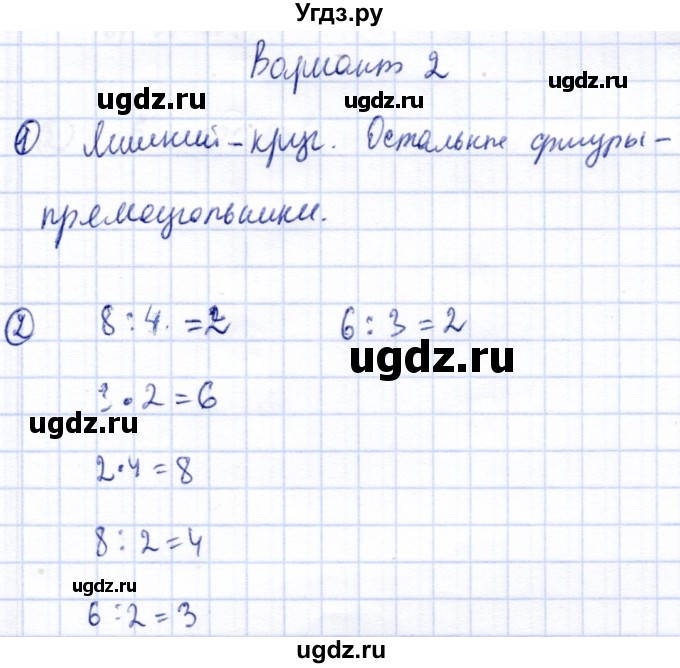 Угдз.ру
Вариант 2
ugdz.ru ugdz.ru ugdz.ru
① Лишний – круг. Остальные фигуры –
прямоугольники.
② 8 : 4. = 2 6 : 3 = 2
ugdz.ru
3 • 2 = 6
ugdz.ru
2 • 4 = 8
8 : 2 = 4
ugdz.ru
6 : 2 = 3
ugdz.ru